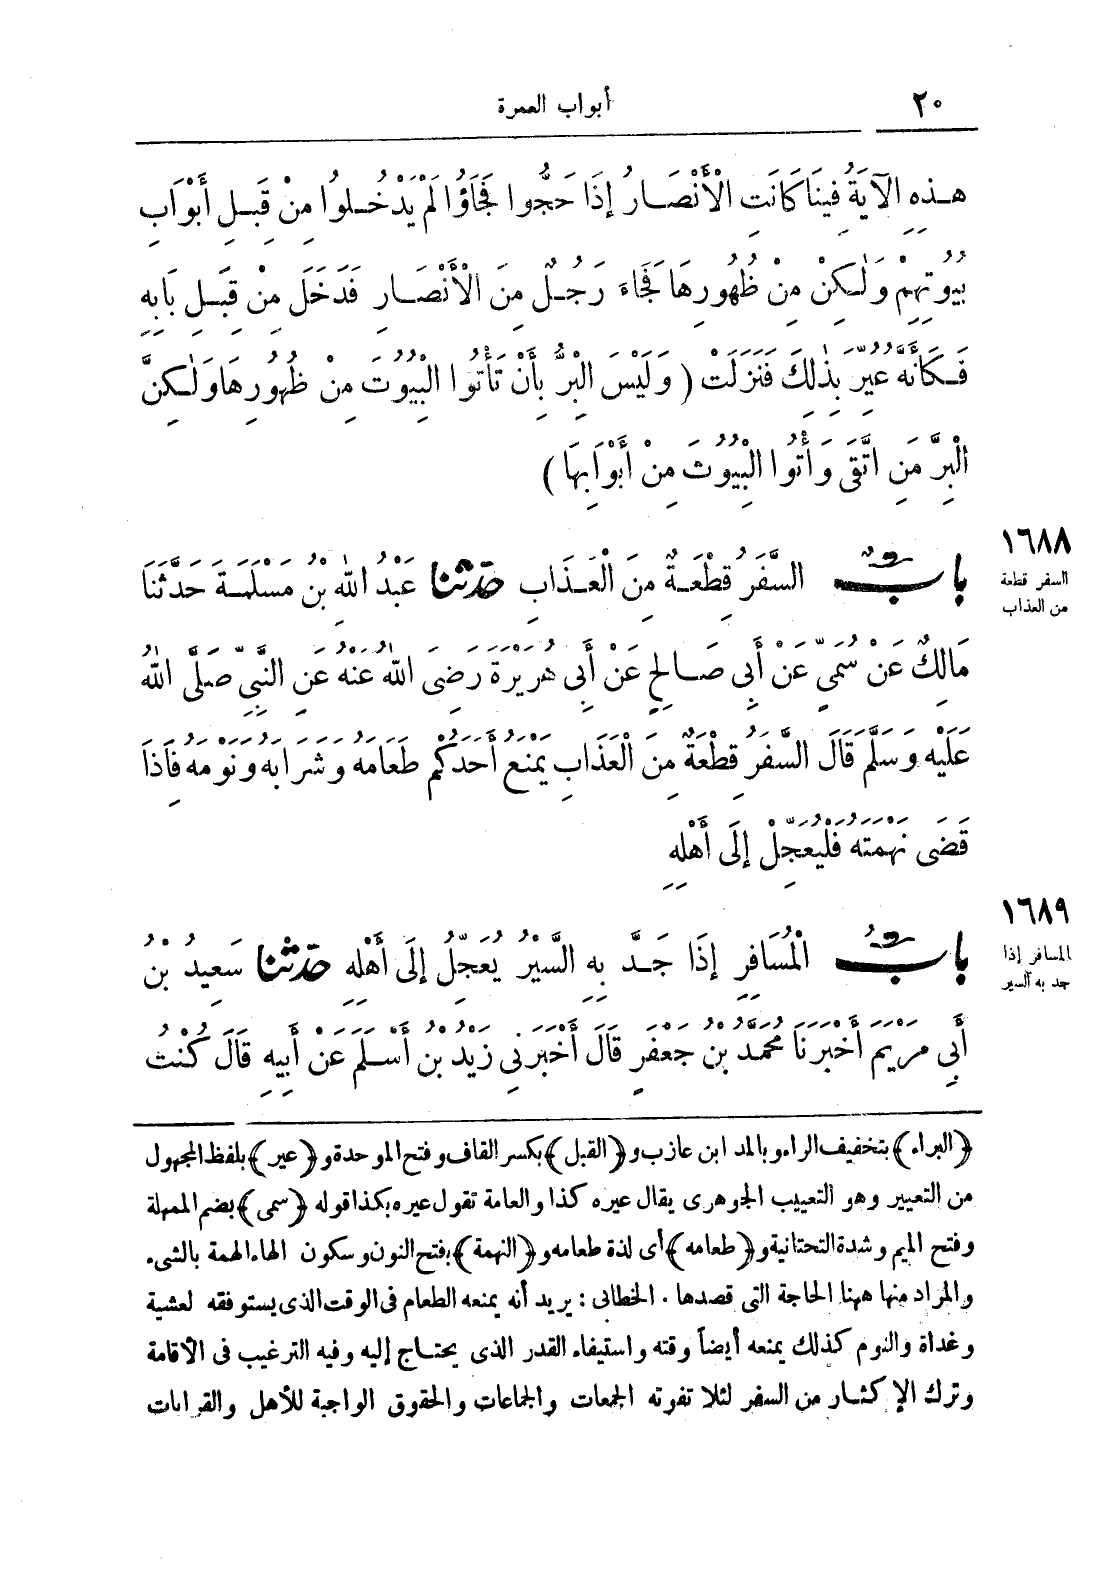 ٢٠ أبواب العمرة
هَـذِهِ الْآيَةُ فِينَا كَانَتِ الْأَنْصَـارُ إِذَا حَجُّوا فَجَاؤُا لَمْ يَدْخُـلُوا مِنْ قِبَـلِ أَبْوَابِ
بُيُوتِهِمْ وَلَـكِنْ مِنْ ظُهُورِهَا فَجَاءَ رَجُـلٌ مِنَ الْأَنْصَـارِ فَدَخَلَ مِنْ قِبَـلِ بَابِهِ
فَـكَأَنَّهُ عُيِّرَ بِذٰلِكَ فَنَزَلَتْ ( وَلَيْسَ الْبِرُّ بِأَنْ تَأْتُوا الْبُيُوتَ مِنْ ظُهُورِهَا وَلَـكِنَّ
الْبِرَّ مَنِ اتَّقَى وَأْتُوا الْبُيُوتَ مِنْ أَبْوَابِهَا )
١٦٨٨
السفر قطعة
من العذاب
بَابٌ السَّفَرُ قِطْعَـةٌ مِنَ الْعَـذَابِ حَدَّثَنَا عَبْدُ اللهِ بْنُ مَسْلَمَـةَ حَدَّثَنَا
مَالِكٌ عَنْ سُمَيٍّ عَنْ أَبِى صَـالِحٍ عَنْ أَبِى هُرَيْرَةَ رَضِىَ اللهُ عَنْهُ عَنِ النَّبِيِّ صَلَّى اللهُ
عَلَيْهِ وَسَلَّمَ قَالَ السَّفَرُ قِطْعَةٌ مِنَ الْعَذَابِ يَمْنَعُ أَحَدَكُمْ طَعَامَهُ وَشَرَابَهُ وَنَوْمَهُ فَإِذَا
قَضَى نَهْمَتَهُ فَلْيُعَجِّلْ إِلَى أَهْلِهِ
١٦٨٩
المسافر إذا
جد به السير
بَابُ الْمُسَافِرِ إِذَا جَـدَّ بِهِ السَّيْرُ يُعَجِّلُ إِلَى أَهْلِهِ حَدَّثَنَا سَعِيدُ بْنُ
أَبِي مَرْيَمَ أَخْبَرَنَا مُحَمَّدُ بْنُ جَعْفَرٍ قَالَ أَخْبَرَنِى زَيْدُ بْنُ أَسْلَمَ عَنْ أَبِيهِ قَالَ كُنْتُ
﴿البراء﴾ بتخفيف الراء وبالمد ابن عازب و﴿القبل﴾ بكسر القاف وفتح الموحدة و﴿عير﴾ بلفظ المجهول
من التعيير وهو التعييب الجوهرى يقال عيره كذا والعامة تقول عيره بكذا قوله ﴿سمى﴾ بضم المهملة
وفتح الميم وشدة التحتانية و﴿طعامه﴾ أى لذة طعامه و﴿النهمة﴾ بفتح النون وسكون الهاء الهمة بالشىء
والمراد منها ههنا الحاجة التى قصدها . الخطابى : يريد أنه يمنعه الطعام فى الوقت الذى يستوفقه لعشية
وغداة والنوم كذلك يمنعه أيضاً وقته واستيفاء القدر الذى يحتـاج إليه وفيه الترغيب فى الاقامة
وترك الإكثـار من السفر لئلا تفوته الجمعات والجماعات والحقوق الواجبة للأهل والقرابات